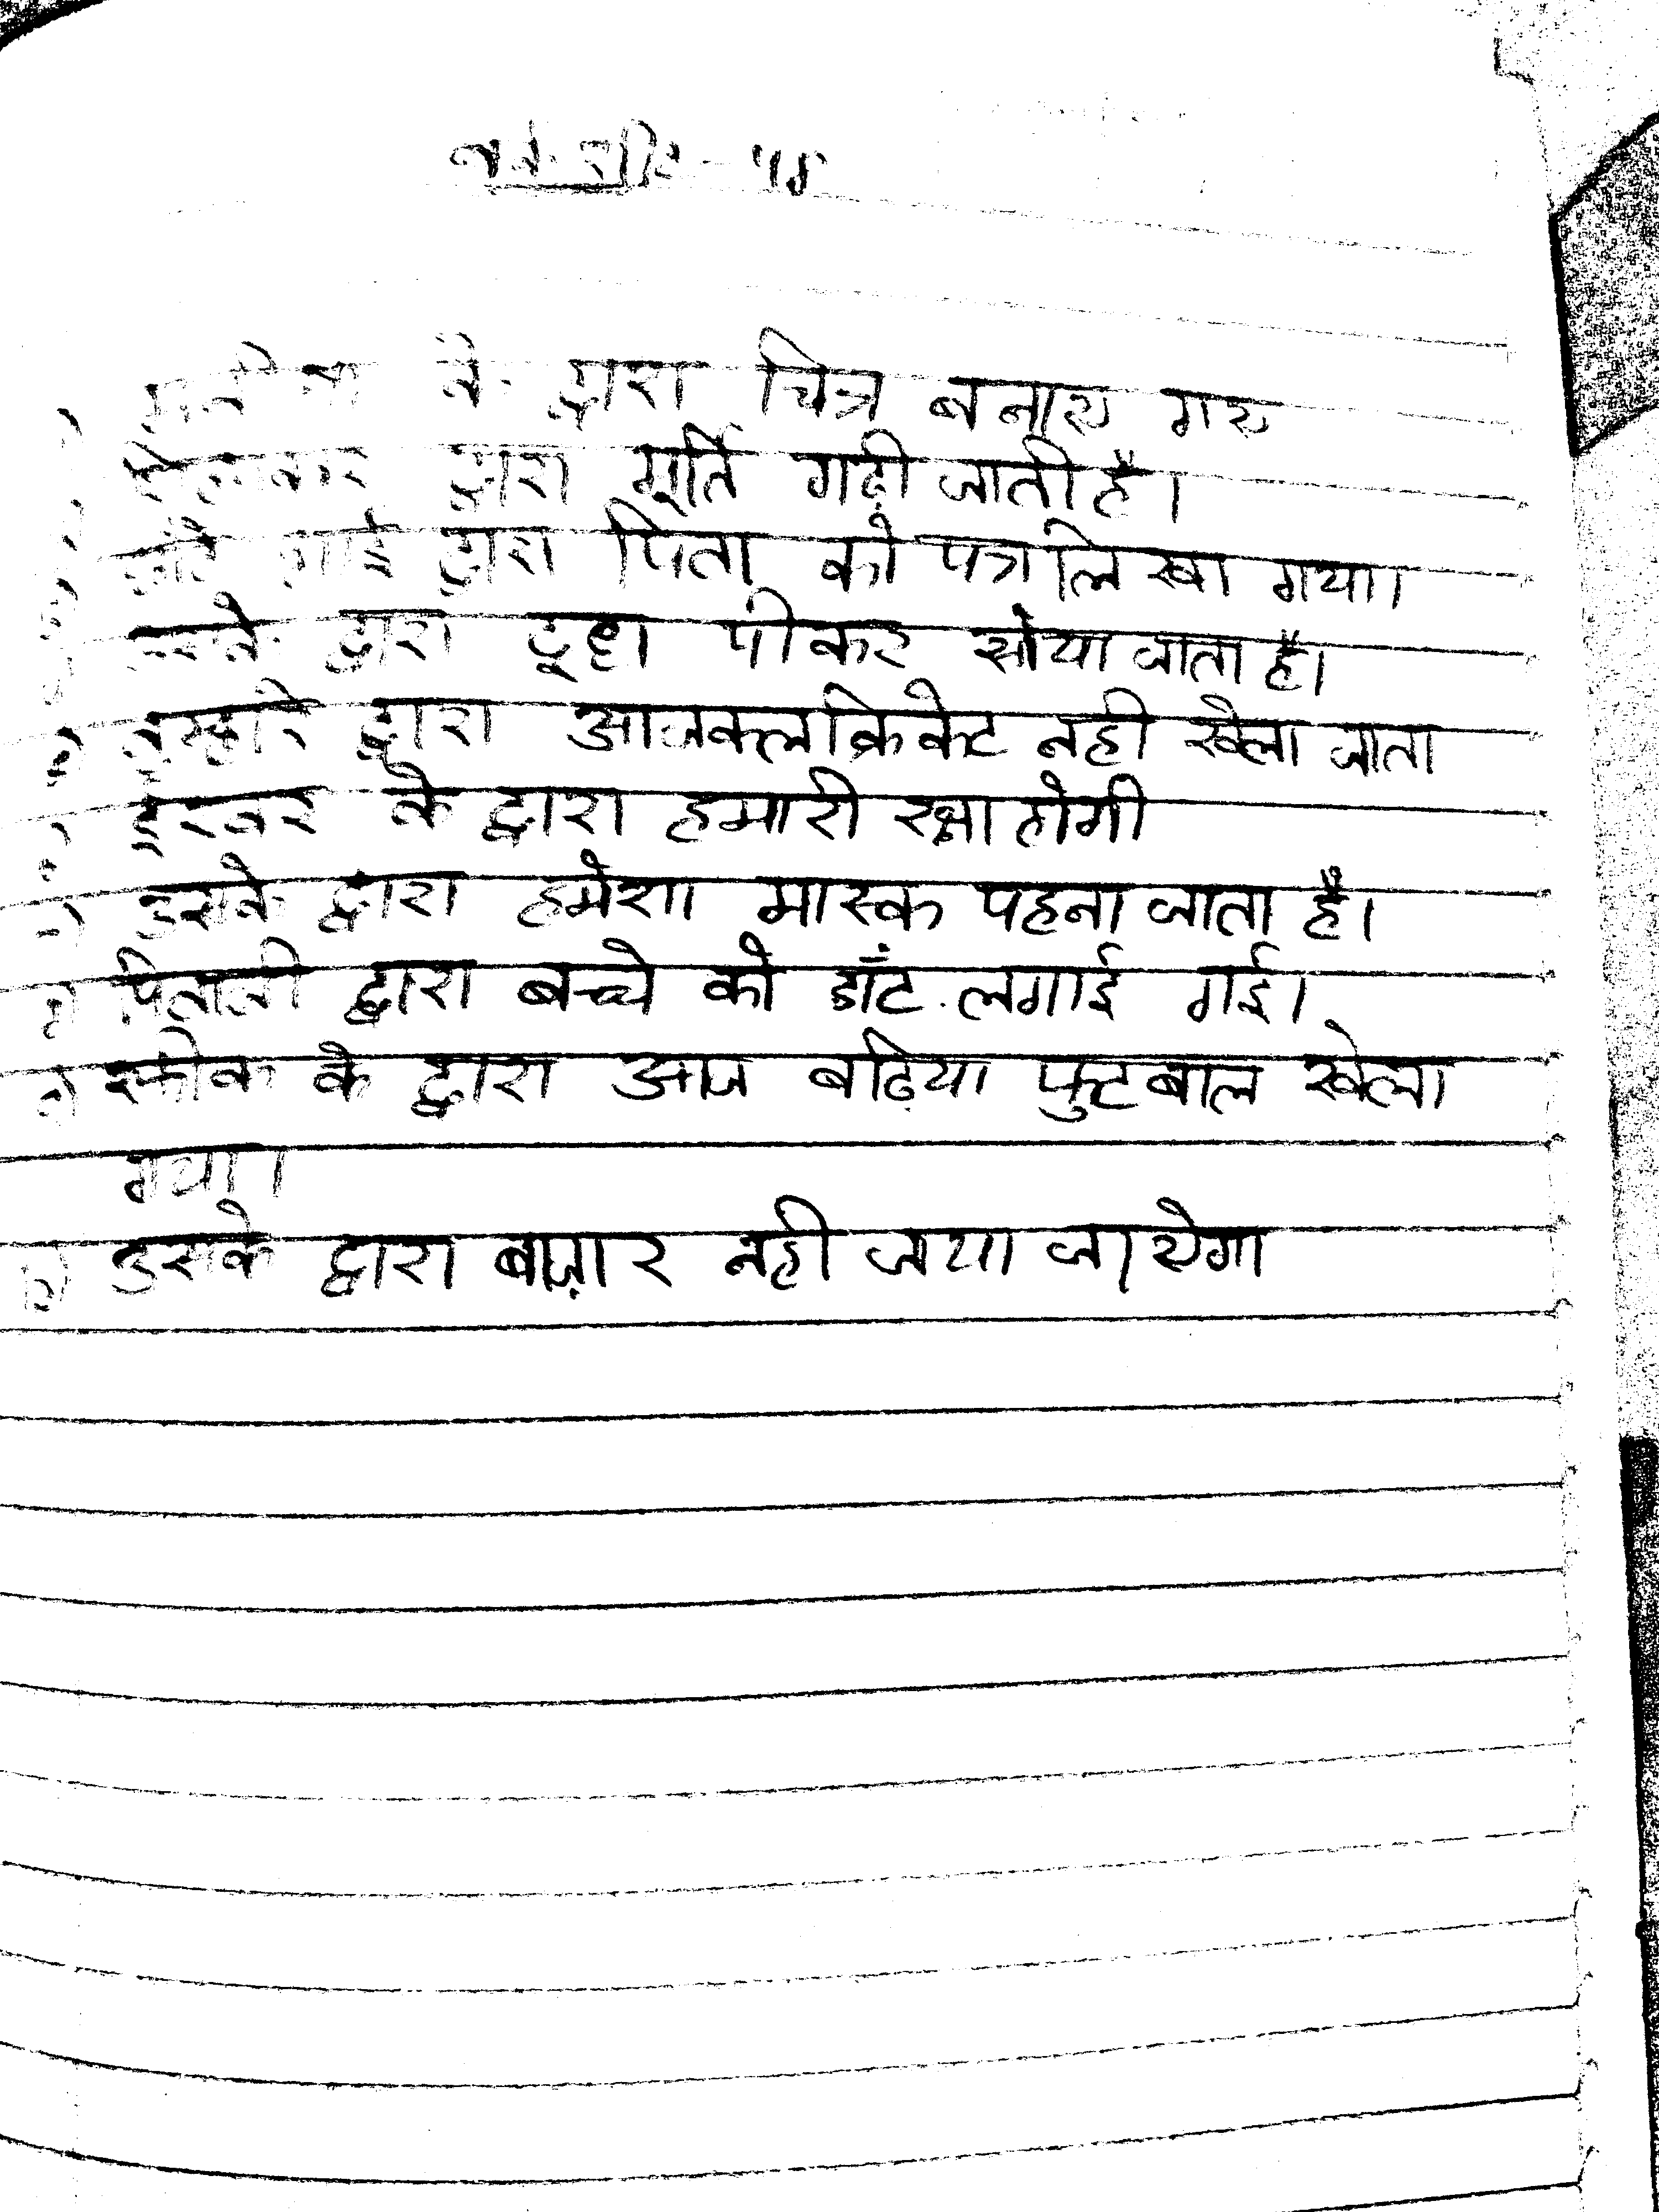 के द्वारा चित्र बनाए गए
द्वारा मूर्ति गढ़ी जाती है।
द्वारा पिता को पत्र लिखा गया।
द्वारा दूध पीकर सोया जाता है।
तुम्हारे द्वारा आजकल क्रिकेट नही खेला जाता
ईश्वर के द्वारा हमारी रक्षा होगी
इसके द्वारा हमेशा मास्क पहना जाता है।
पिताजी द्वारा बच्चे को डाँट लगाई गई।
के द्वारा आज बढ़िया फुटबाल खेला
गया।
उसके द्वारा बाज़ार नही जाया जायेगा